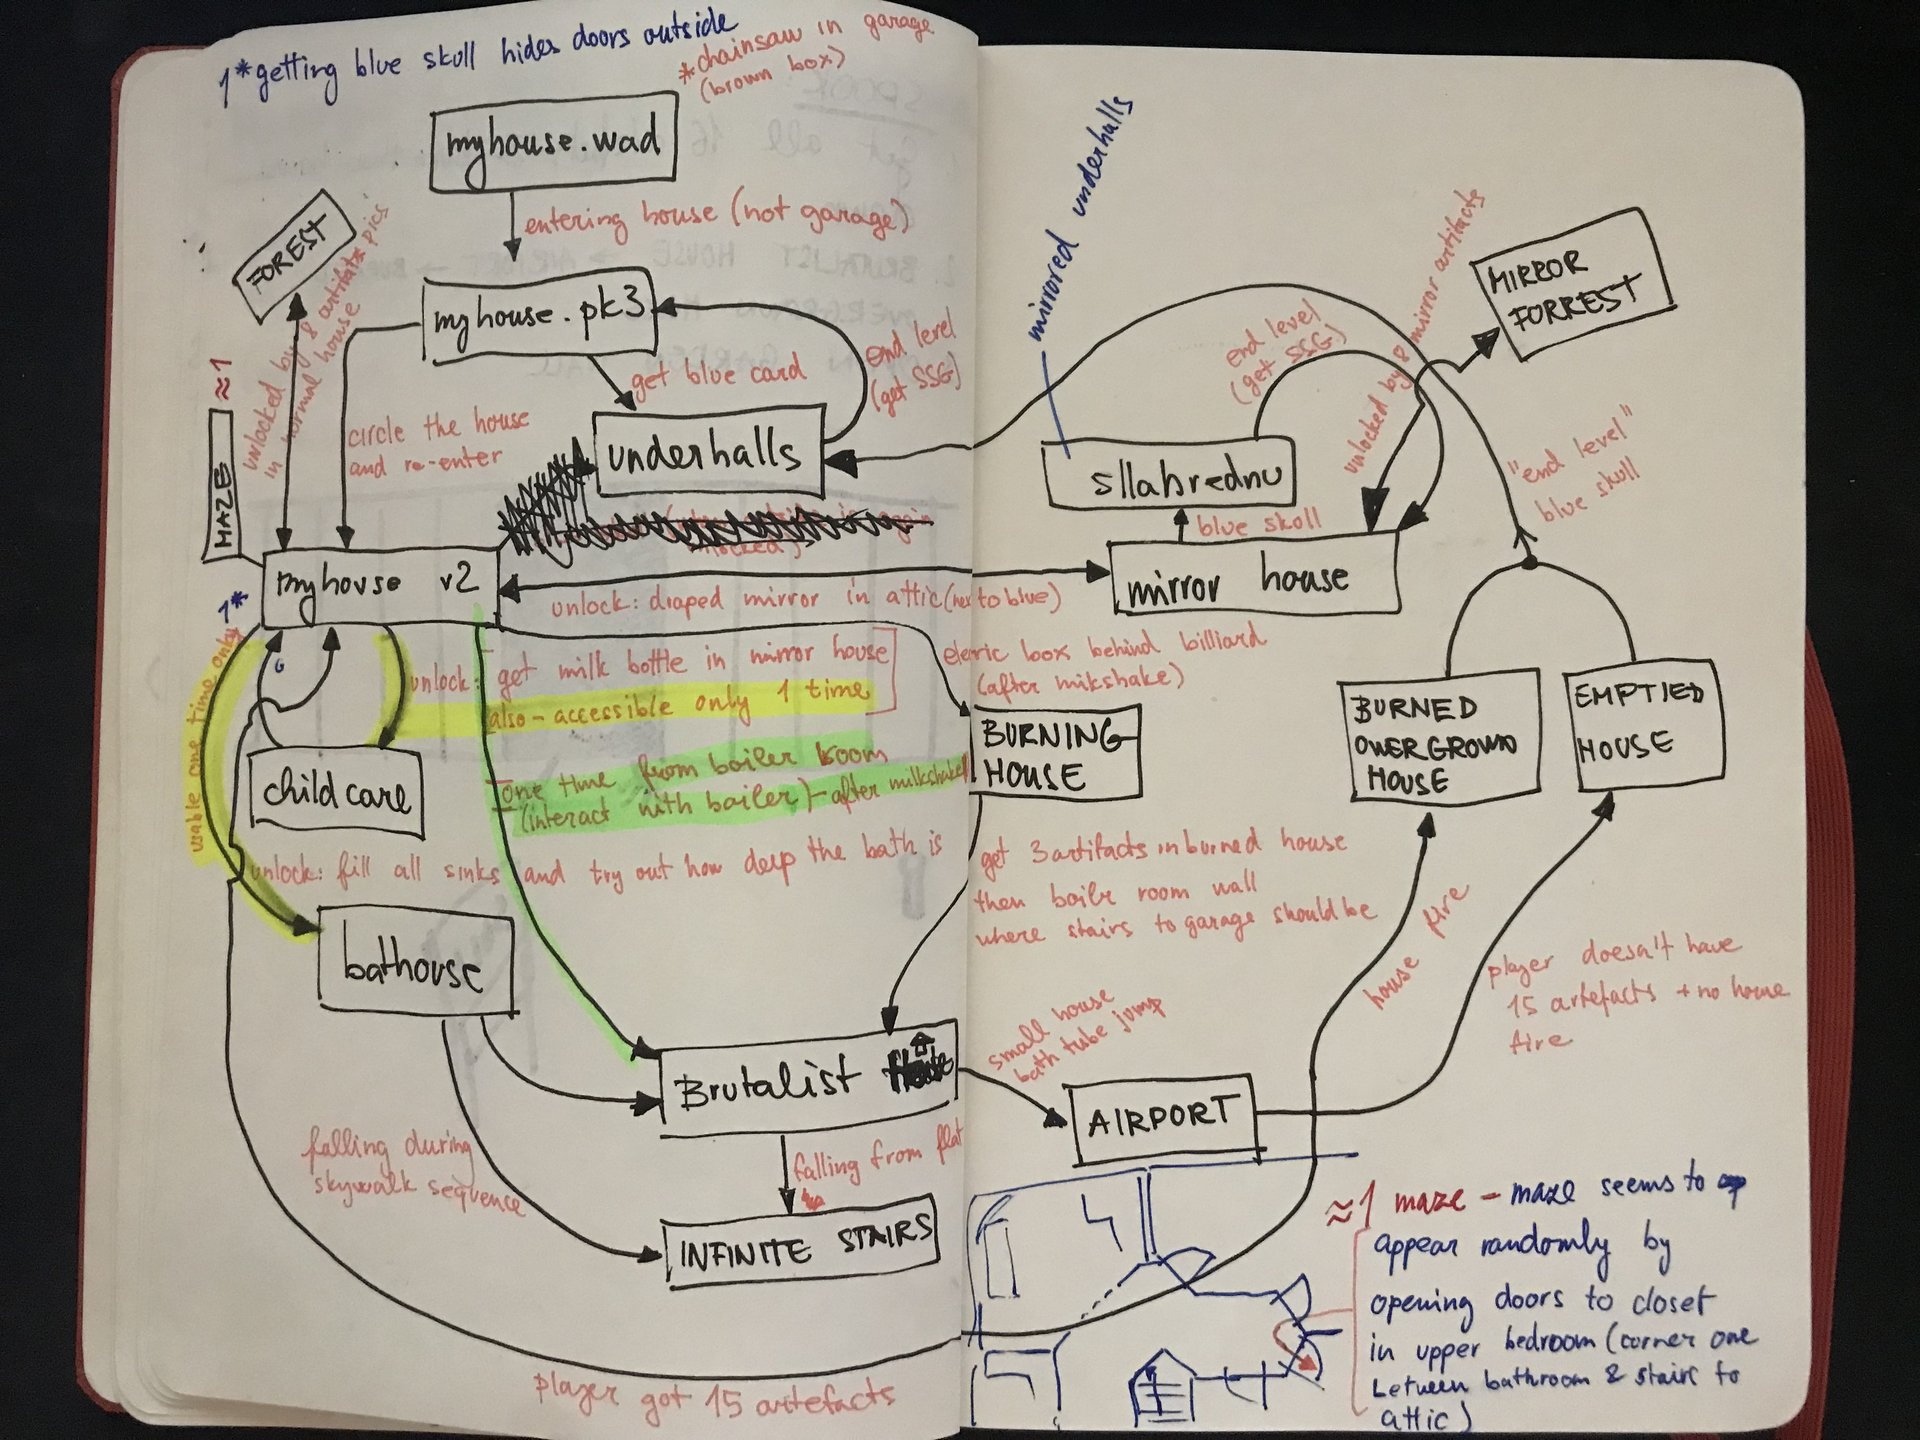 1*getting blue skull hides doors outside
*chainsaw in garage
(brown box)
myhouse.wad
entering house (not garage)
FOREST
unlocked by 8 artifatx pics
in normal house
myhouse.pk3
get blue card
end level
(get SSG)
circle the house
and re-enter
underhalls
≈1
MAZE
myhouse v2
1*
unlock: draped mirror in attic (next to blue)
usable one time only
unlock: get milk bottle in mirror house
also - accessible only 1 time
child care
one time from boiler room
(interact with boiler) - after milkshake
unlock: fill all sinks and try out how deep the bath is
bathouse
Brutalist
falling during
skywalk sequence
falling from flat
INFINITE STAIRS
player got 15 artefacts
mirrored underhalls
MIRROR
FORREST
unlocked by 8 mirror artifacts
end level
(get SSG)
sllahrednu
blue skull
mirror house
"end level"
blue skull
eletric box behind billiard
(after mikshake)
BURNING
HOUSE
BURNED
OWERGROWN
HOUSE
EMPTIED
HOUSE
get 3 artifacts in burned house
then boiler room wall
where stairs to garage should be
house fire
player doesn't have
15 artefacts + no home
fire
small house
bath tube jump
AIRPORT
≈1 maze - maze seems to
appear randomly by
opening doors to closet
in upper bedroom (corner one
between bathroom & stairs to
attic)